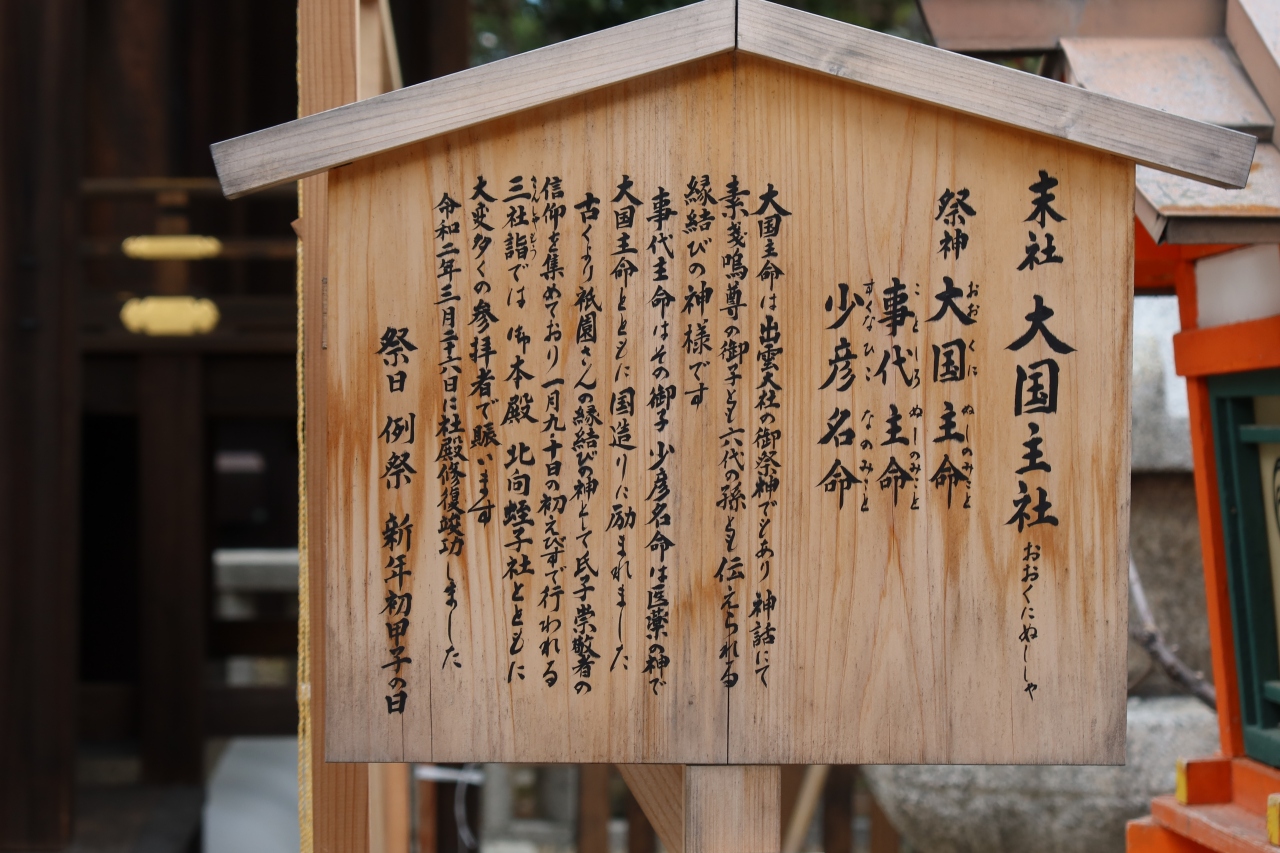 末社 大国主社 おおくにぬししゃ
祭神 大国主命 おおくにぬしのみこと
事代主命 ことしろぬしのみこと
少彦名命 すくなひこなのみこと
大国主命は出雲大社の御祭神でもあり 神話にて
素戔嗚尊の御子とも六代の孫とも伝えられる
縁結びの神様です
事代主命はその御子 少彦名命は医薬の神で
大国主命とともに国造りに励まれました
古くより祇園さんの縁結びの神として氏子崇敬者の
信仰を集めており 一月九・十日の初えびすで行われる
三社詣では 御本殿 北向蛭子社とともに さんしゃもうで
大変多くの参拝者で賑います
令和二年三月二十六日に社殿修復竣功しました
祭日 例祭 新年初甲子の日